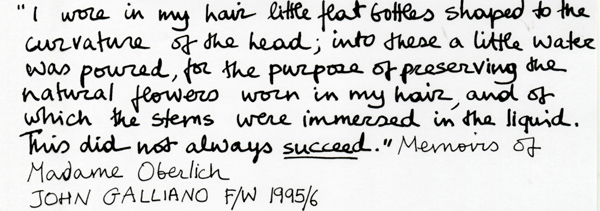 "I wore in my hair little flat bottles shaped to the
curvature of the head; into these a little water
was poured, for the purpose of preserving the
natural flowers worn in my hair, and of
which the stems were immersed in the liquid.
This did not always succeed." Memoirs of
Madame Oberlich
JOHN GALLIANO F/W 1995/6